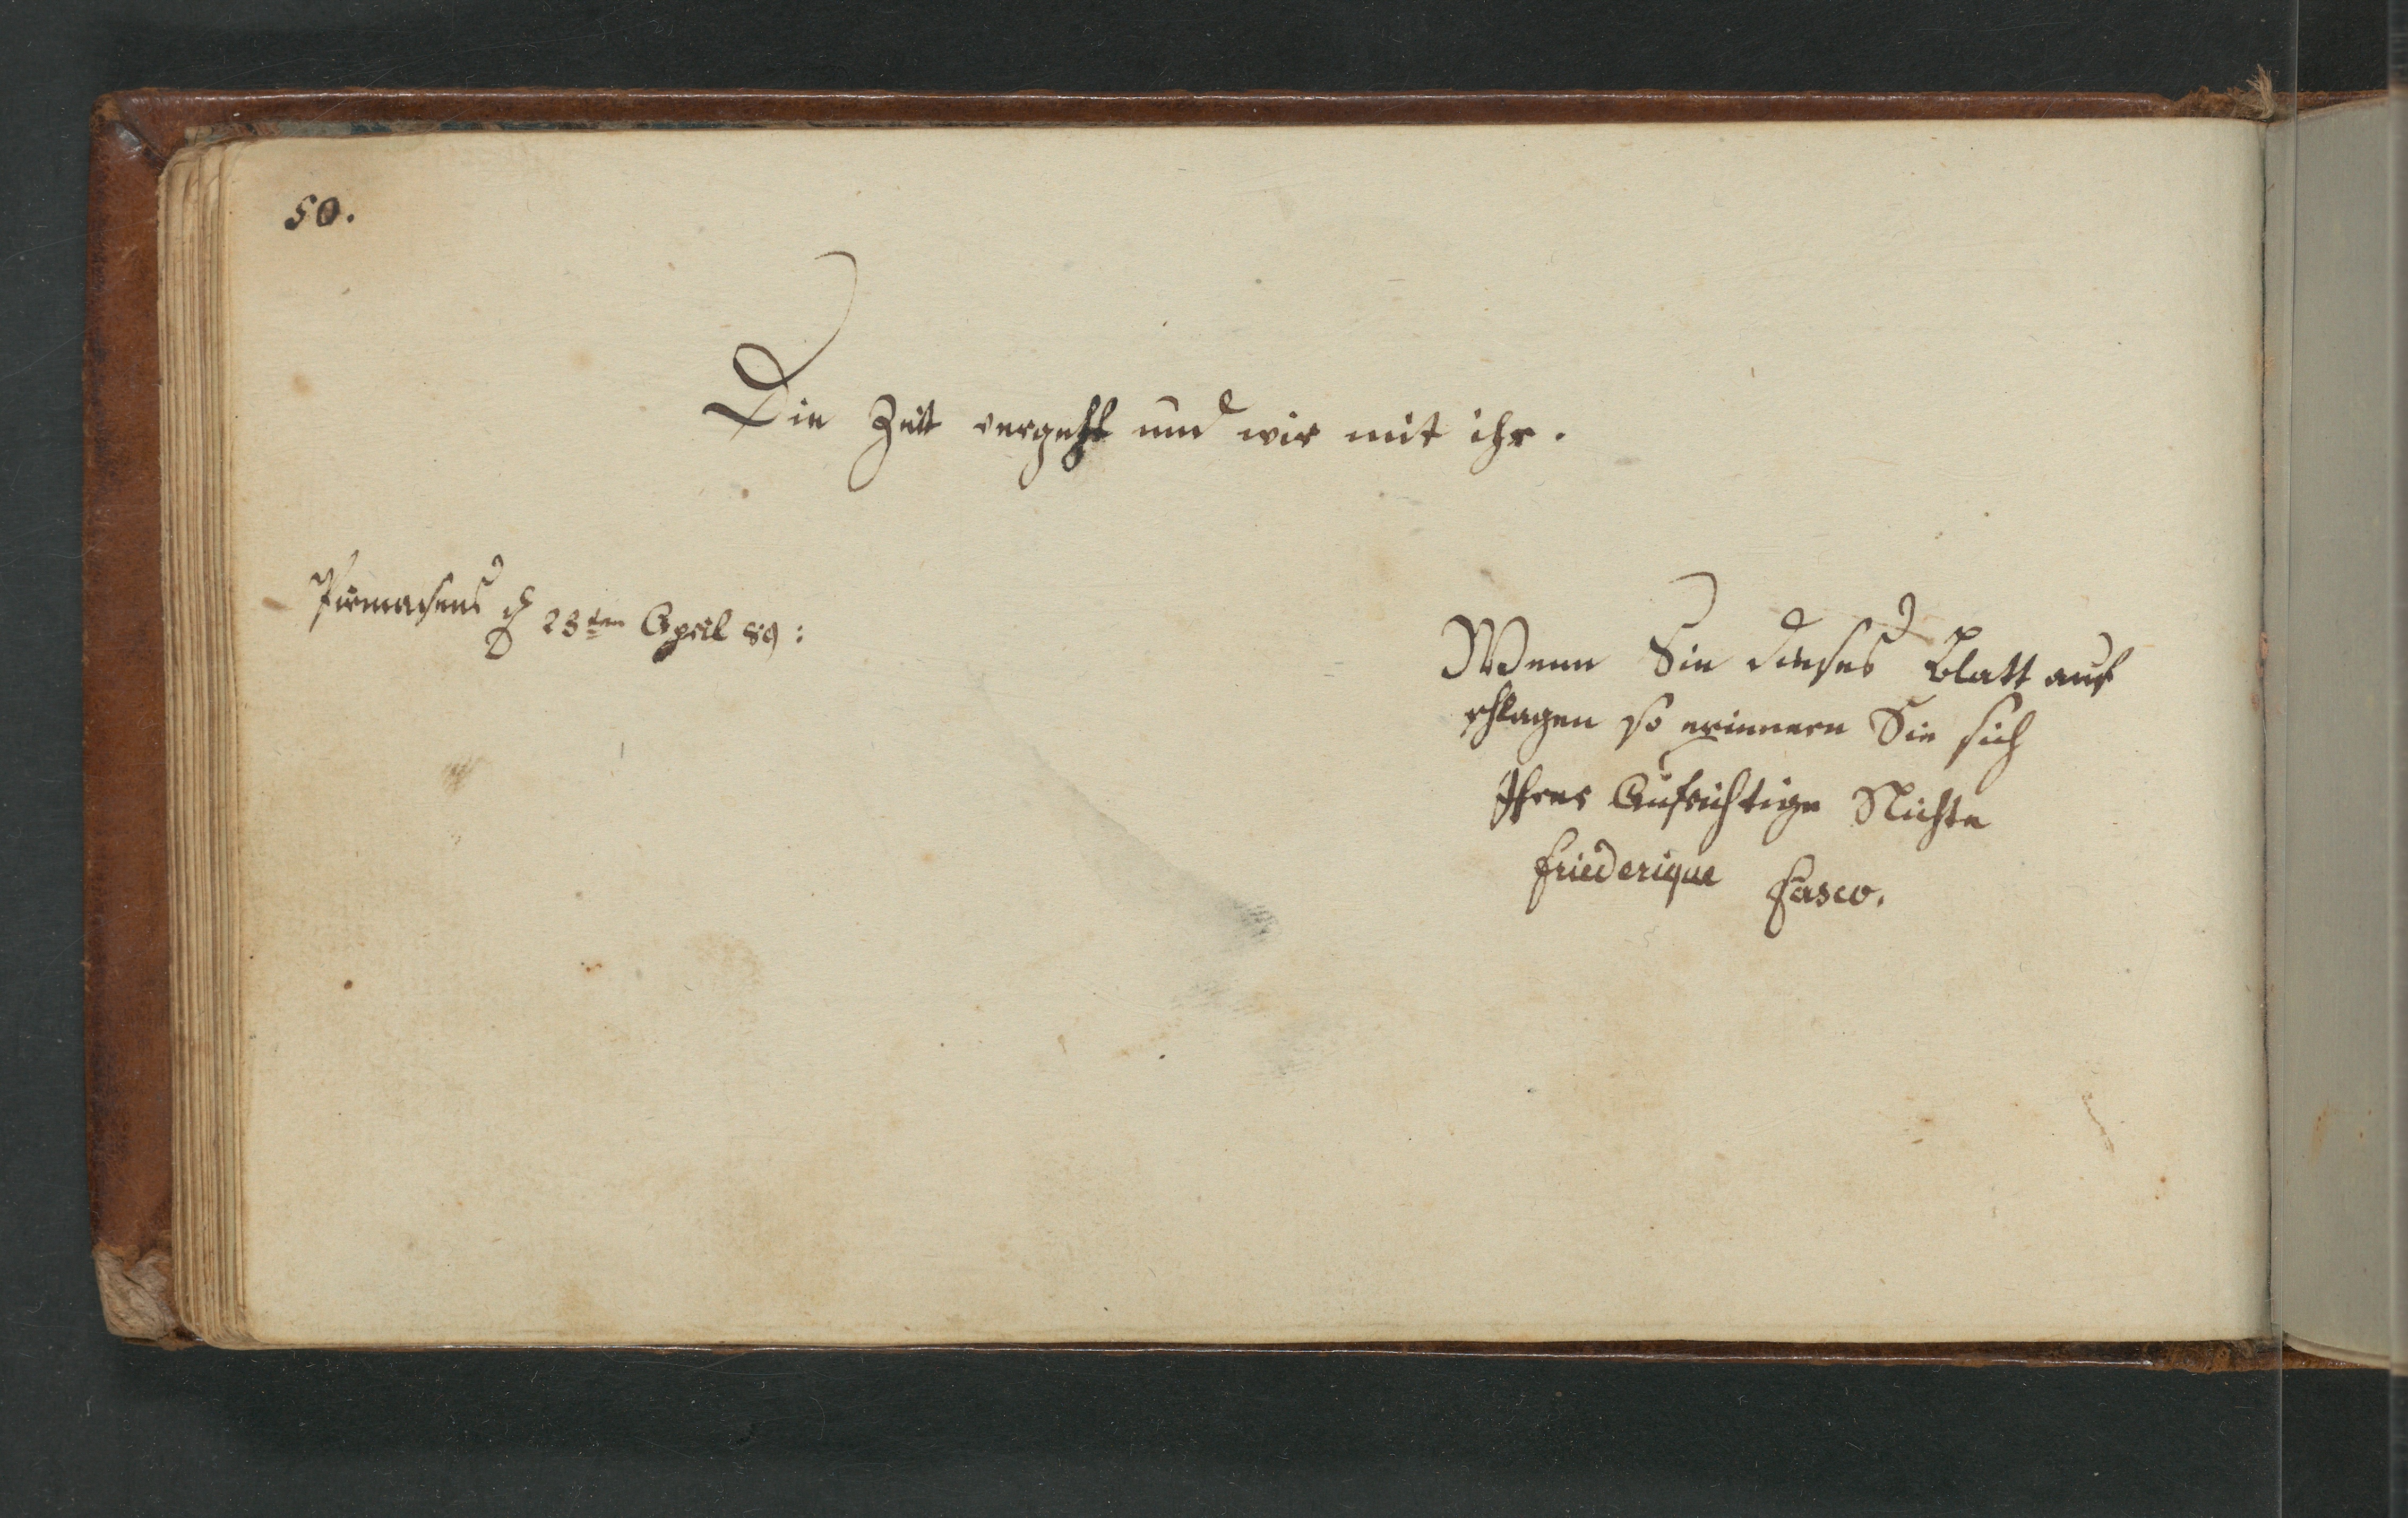 50.
Die Zeit vergeht und wir mit ihr.
Pirmasens d 23ten April 89:
Wenn Sie dieses Blatt auf
schlagen so erinnern Sie sich
Ihrer Aufrichtige Nichte
Friederique Fasco.